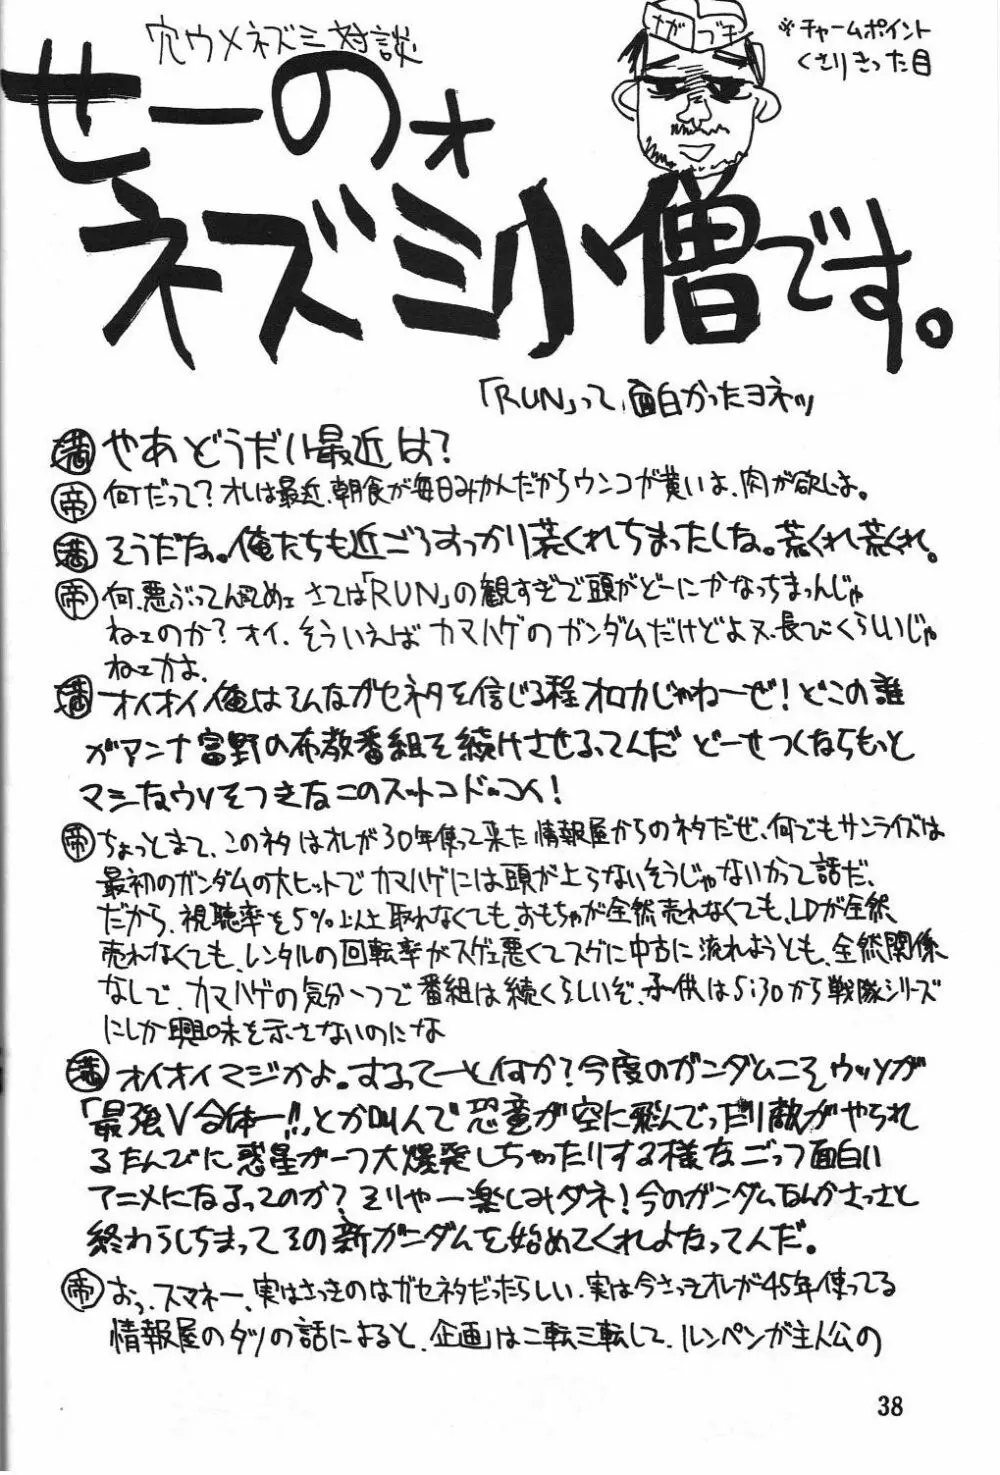 穴ウメネズミ対談
せーのォ
ネズミ小僧です。
※チャームポイント
くさりきった目
「RUN」って、面白かったヨネッ
満 やあどうだい最近は?
帝 何だって?オレは最近、朝食が毎日みかんだからウンコが黄いよ、肉が欲しいよ。
満 そうだな。俺たちも近ごろすっかり荒くれちまったしな。荒くれ荒くれ。
帝 何、悪ぶってんだてめェ さては「RUN」の観すぎで頭がどーにかなっちまったんじゃ
ねェのか?オイ、そういえばカマハゲのガンダムだけどよ又、長びくらしいじゃ
ねェかよ。
満 オイオイ俺はそんなガセネタを信じる程オロカじゃねーぜ!どこの誰
がアンナ富野の布教番組を続けさせるってんだ どーせつくならもっと
マシなウソをつきなこのスットコドッコイ!
帝 ちょっとまて、このネタはオレが30年使って来た情報屋からのネタだぜ、何でもサンライズは
最初のガンダムの大ヒットでカマハゲには頭が上らないそうじゃないかって話だ、
だから、視聴率を5%以上取れなくても、おもちゃが全然売れなくても、LDが全然、
売れなくても、レンタルの回転率がスゲェ悪くてスグに中古に流れようとも、全然関係
なしで、カマハゲの気分一つで番組は続くらしいぞ、子供は5:30から戦隊シリーズ
にしか興味を示さないのにな
満 オイオイマジかよ。するってーと何か?今度のガンダムこそウッソが
「最強V合体ー!!」とか叫んで恐竜が空に飛んでったり敵がやられ
るたんびに惑星が一つ大爆発しちゃったりする様なごっつ面白い
アニメになるってのか?そりゃー楽しみダネ!今のガンダムなんかさっさと
終わらしちまってその新ガンダムを始めてくれよなってんだ。
帝 おっ、スマネー、実はさっきのはガセネタだったらしい、実は今さっきオレが45年使ってる
情報屋のダツの話によると、企画は二転三転して、ルンペンが主人公の
38